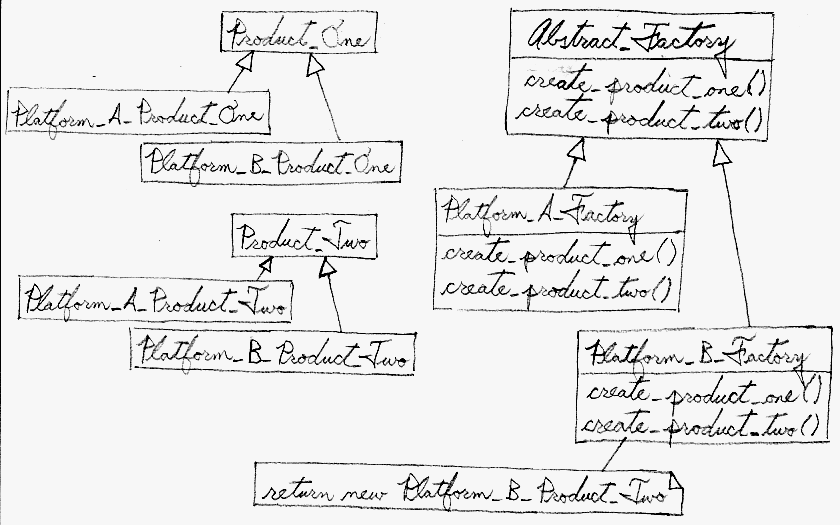 Product_One
Platform_A_Product_One
Platform_B_Product_One
Product_Two
Platform_A_Product_Two
Platform_B_Product_Two
Abstract_Factory
create_product_one()
create_product_two()
Platform_A_Factory
create_product_one()
create_product_two()
Platform_B_Factory
create_product_one()
create_product_two()
return new Platform_B_Product_Two